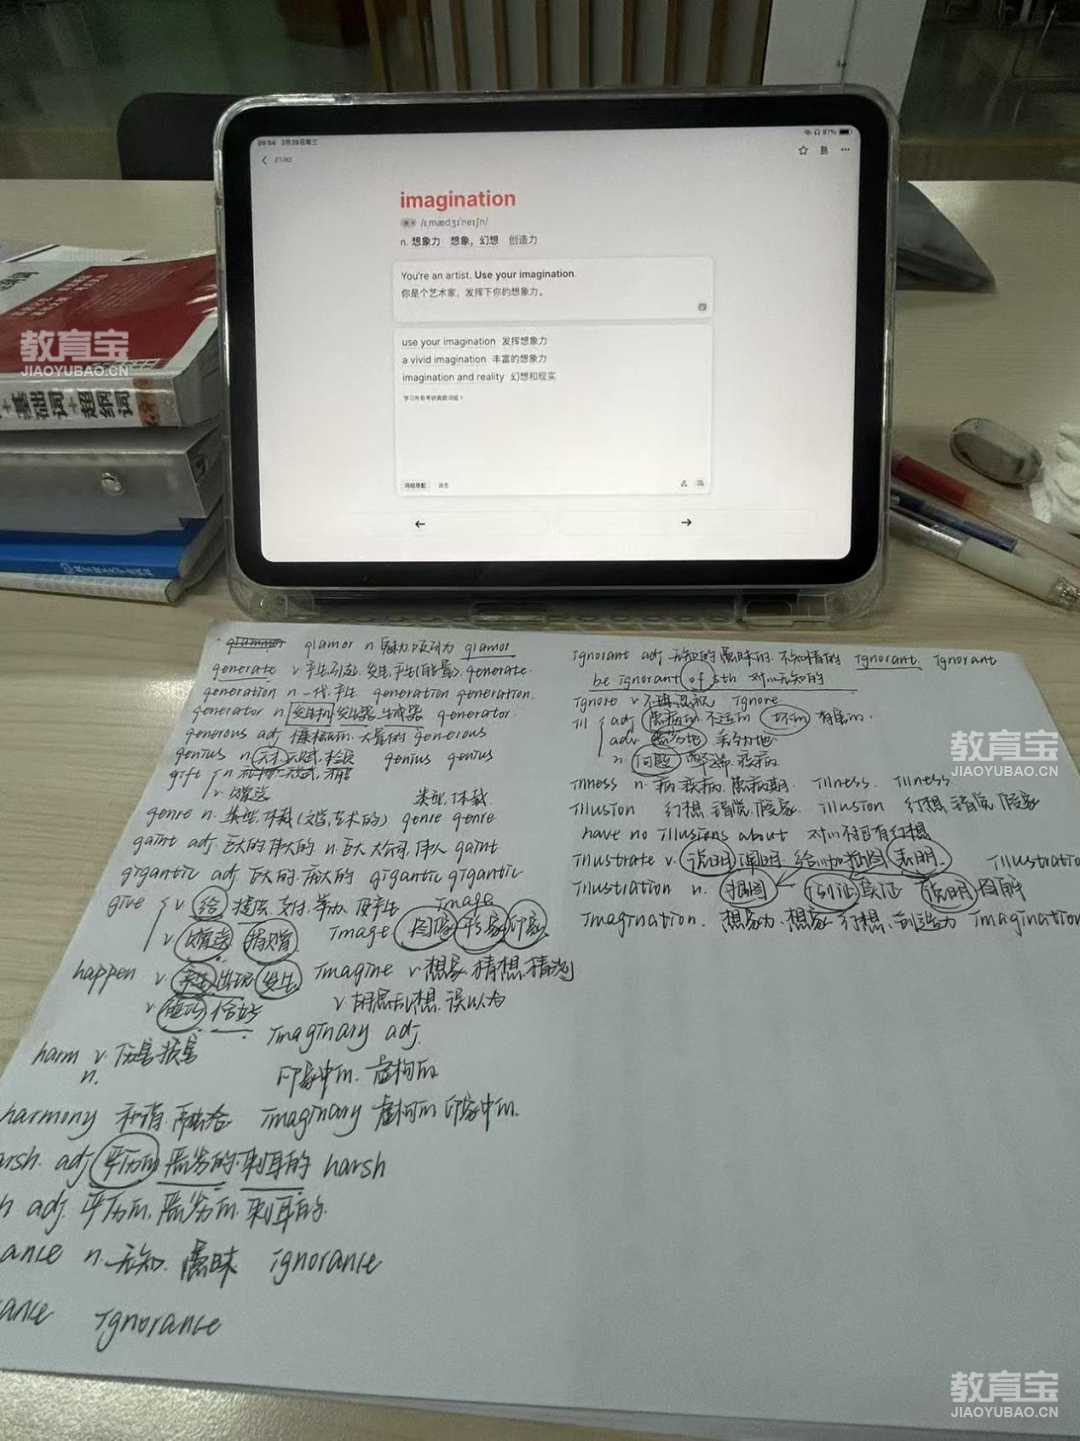 09:54 3月26日周三
87%
21/82
imagination
/ɪˌmædʒɪˈneɪʃn/
n. 想象力 想象，幻想 创造力
You're an artist. Use your imagination.
你是个艺术家，发挥下你的想象力。
use your imagination 发挥想象力
a vivid imagination 丰富的想象力
imagination and reality 幻想和现实
学习所有考研真题词组 >
词组搭配 派生
← →
教育宝
JIAOYUBAO.CN
基础词+超纲词
glamor n 魅力 吸引力 glamor
generate v 产生 引起 generate
generation n 一代 产生 generation generation.
generator n 发生器 generator
generous adj 慷慨的 大量的 generous
genius n 天才 genius genius
gift n 天赋
v. 赠送
类型.体裁.
genre n. 类型.体裁(文学,艺术的) genre genre
gaint adj 巨大的 伟大的 n.巨大 大公司 伟人 gaint
gigantic adj 巨大的.庞大的 gigantic gigantic
give v 给 提供.支付.举办. Image
v 赠送 捐赠 Image 图像 形象 印象
happen v. 发生 出现 发生 Imagine v.想象.猜想.猜测
v 碰巧 恰好 v.胡思乱想.误以为
Imaginary adj.
harm v. 伤害 损害
n. 印象中的.虚构的
harmony 和谐.融洽 Imaginary 虚构的 印象中的.
arsh. adj 严厉的 恶劣的.刺耳的 harsh
h adj. 严厉的.恶劣的.刺耳的.
ance n. 无知.愚昧 ignorance
ance Ignorance
Ignorant adj 无知的 愚昧的.不知情的 Ignorant. Ignorant
be ignorant of sth 对…无知的
Ignore v 不理.忽视 Ignore
ill adj 有病的.不适的 坏的 有害的.
adv
n. 问题 疾病
Illness n. 病 疾病.患病期. Illness. Illness.
Illusion 幻想.错觉.假象. Illusion 幻想.错觉.假象
have no illusions about 对…不抱有幻想
Illustrate v. 说明 阐明.给…加插图 表明. Illustratio
Illustration n. 插图 例证 实证 说明 图解
Imagination. 想象力.想象.幻想.创造力 Imagination
教育宝
JIAOYUBAO.CN
教育宝
JIAOYUBAO.CN